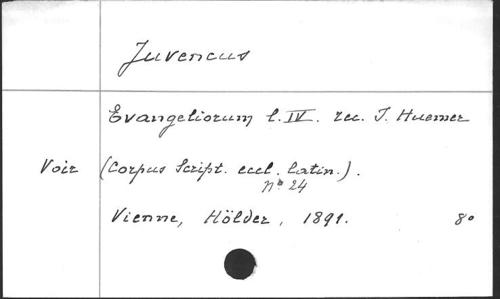 Juvencus
Evangeliorum l. IV. rec. J. Huemer
Voir (Corpus Script. eccl. latin.).
No 24
Vienne, Hölder, 1891. 8o